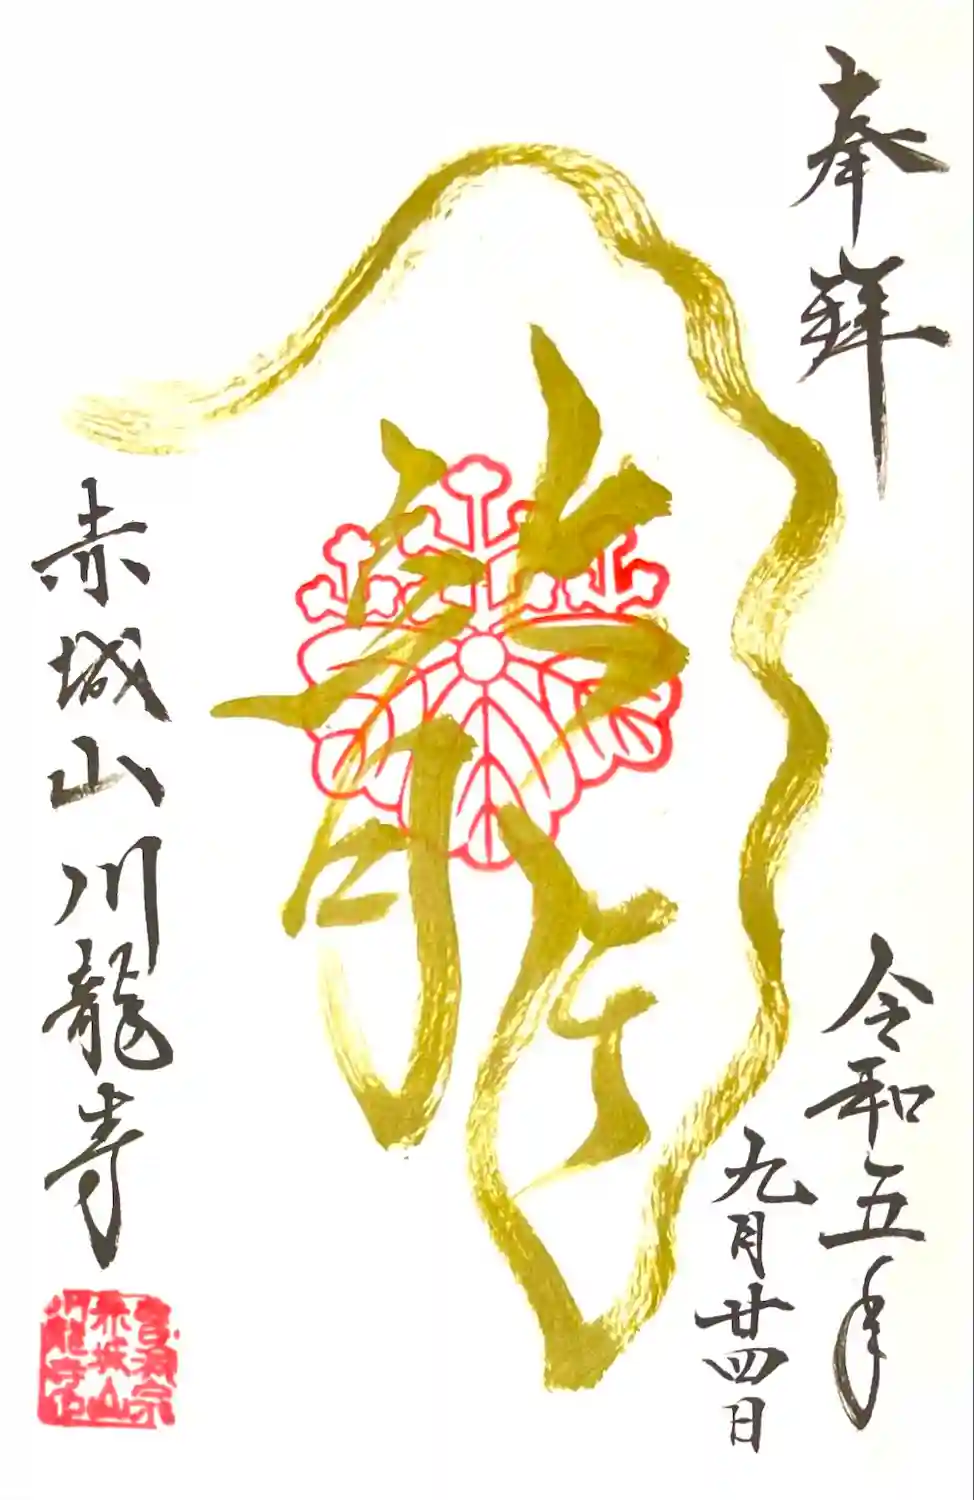 奉拝
令和五年
九月廿四日
龍
赤城山川龍寺
曹洞宗
赤城山
川龍寺印